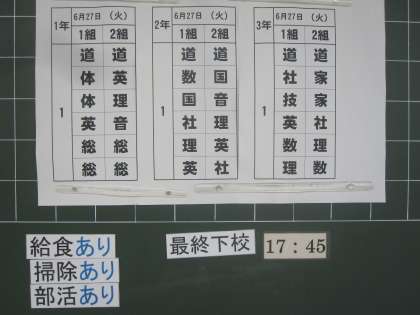 1年 6月27日 (火)
1組 2組
1
道 道
体 英
体 理
英 音
総 総
総 総
2年 6月27日 (火)
1組 2組
1
道 道
数 国
国 音
社 理
理 英
英 社
3年 6月27日 (火)
1組 2組
1
道 道
社 家
技 家
英 社
数 理
理 数
給食あり
掃除あり
部活あり
最終下校 17:45